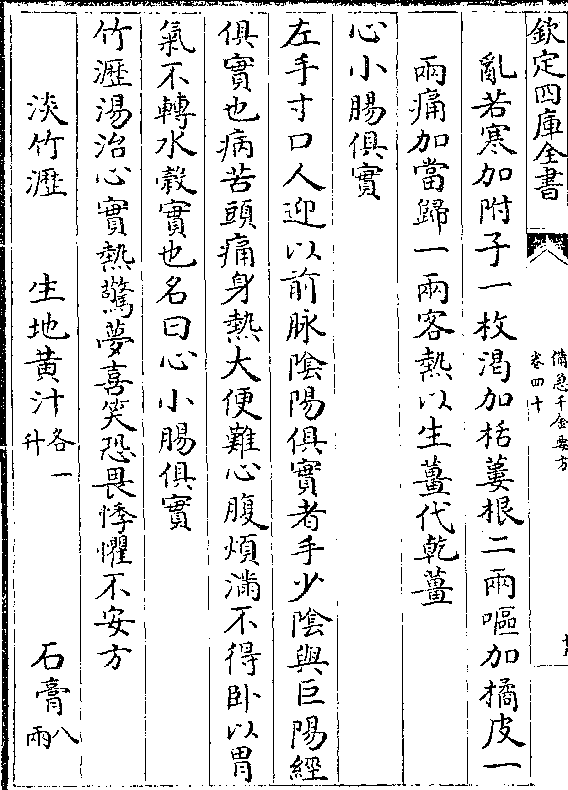 欽定四庫全書
備急千金要方
卷四十
亂若寒加附子一枚渴加栝蔞根二兩嘔加橘皮一
兩痛加當歸一兩客熱以生薑代乾薑
心小腸俱實
左手寸口人迎以前脉陰陽俱實者手少陰與巨陽經
俱實也病苦頭痛身熱大便難心腹煩滿不得卧以胃
氣不轉水穀實也名曰心小腸俱實
竹瀝湯治心實熱驚夢喜笑恐畏悸懼不安方
淡竹瀝 生地黄汁各一升 石膏八兩